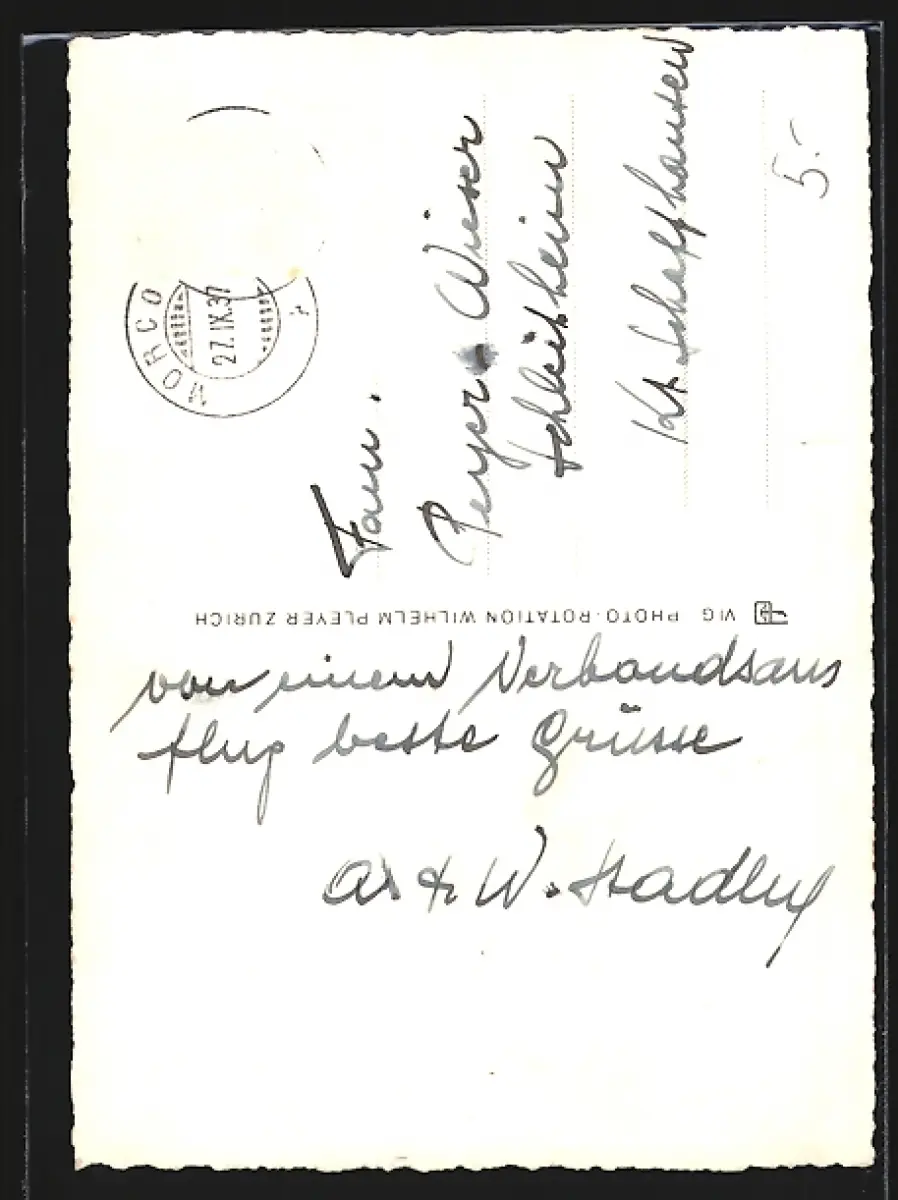 MORCO
27.IX.37
Fam.
Peyer-Wieser
Schleitheim
Kt. Schaffhausen
5.-
VIG PHOTO-ROTATION WILHELM PLEYER ZURICH
von einem Verbandsaus
flug beste Grüsse
& W. Stadler